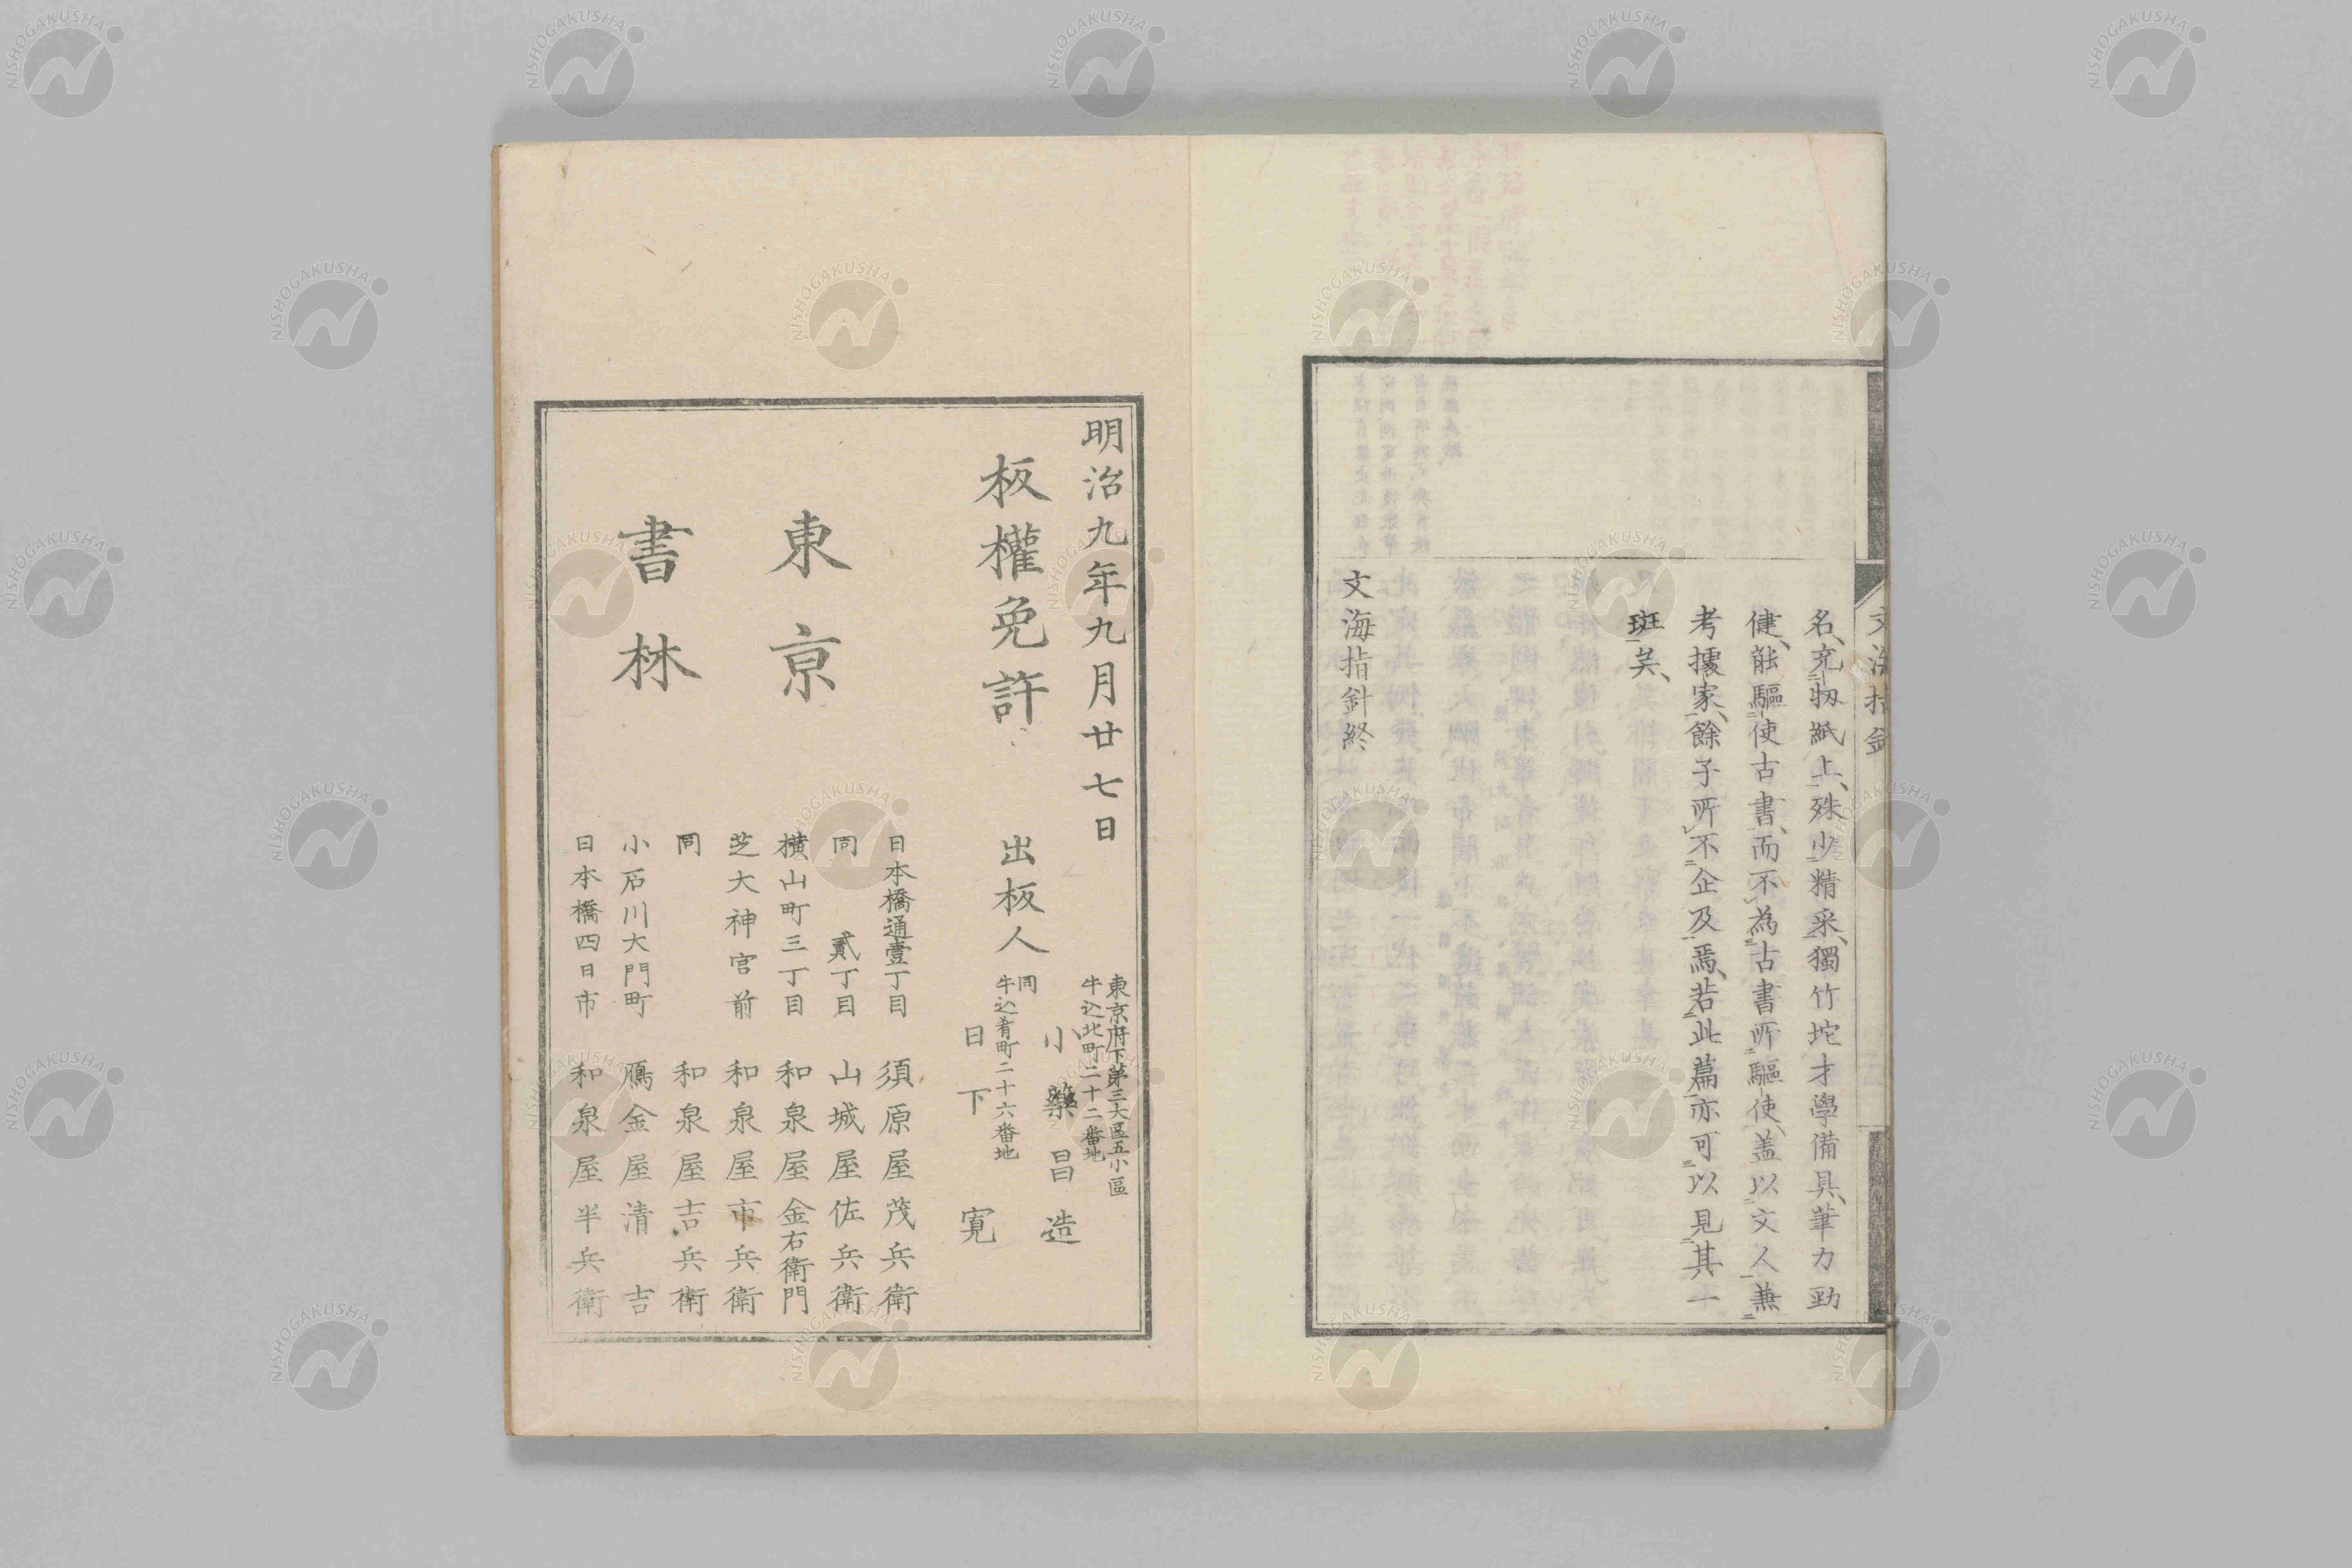 名、充牣紙上、殊少精采、獨竹坨才學備具、筆力勁
健、能驅使古書、而不為古書所驅使、蓋以文人兼
考據家、餘子所不企及焉、若此篇亦可以見其一
斑矣、
文海指針終
明治九年九月廿七日
板權免許
出板人
東京府下第三大區五小區
牛込北町二十二番地
小藥昌造
同
牛込肴町二十六番地
日下寛
東京
書林
日本橋通壹丁目 須原屋茂兵衛
同 貳丁目 山城屋佐兵衛
横山町三丁目 和泉屋金右衛門
芝大神宮前 和泉屋市兵衛
同 和泉屋吉兵衛
小石川大門町 鴈金屋清吉
日本橋四日市 和泉屋半兵衛
NISHOGAKUSHA